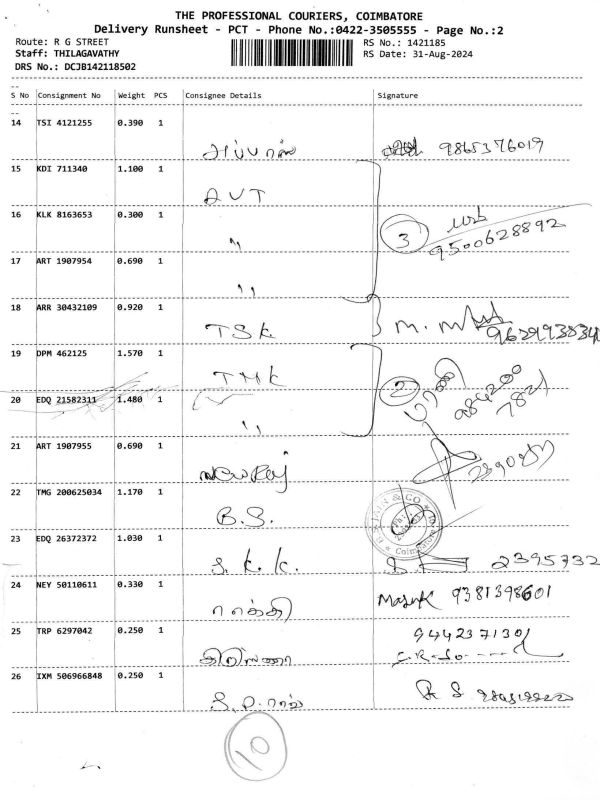 THE PROFESSIONAL COURIERS, COIMBATORE
Delivery Runsheet - PCT - Phone No.:0422-3505555 - Page No.:2
Route: R G STREET RS No.: 1421185
Staff: THILAGAVATHY RS Date: 31-Aug-2024
DRS No.: DCJB142118502
S No Consignment No Weight PCS Consignee Details Signature
14 TSI 4121255 0.390 1 9865376019
15 KDI 711340 1.100 1 AVT
16 KLK 8163653 0.300 1 〃 3 9500628892
17 ART 1907954 0.690 1 〃
18 ARR 30432109 0.920 1 TSK
19 DPM 462125 1.570 1 TMK
20 EDQ 21582311 1.480 1 〃 2
21 ART 1907955 0.690 1 New Raj
22 TMG 200625034 1.170 1 B.S.
23 EDQ 26372372 1.030 1 S.K.K. 2395732
24 NEY 50110611 0.330 1 9381398601
25 TRP 6297042 0.250 1 9442371301
26 IXM 506966848 0.250 1
10